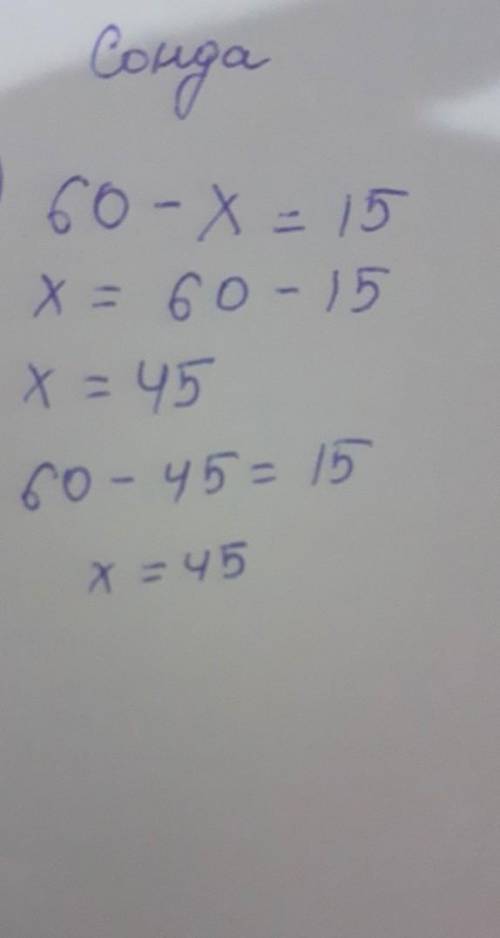 Сонда
) 60 - x = 15
x = 60 - 15
x = 45
60 - 45 = 15
x = 45